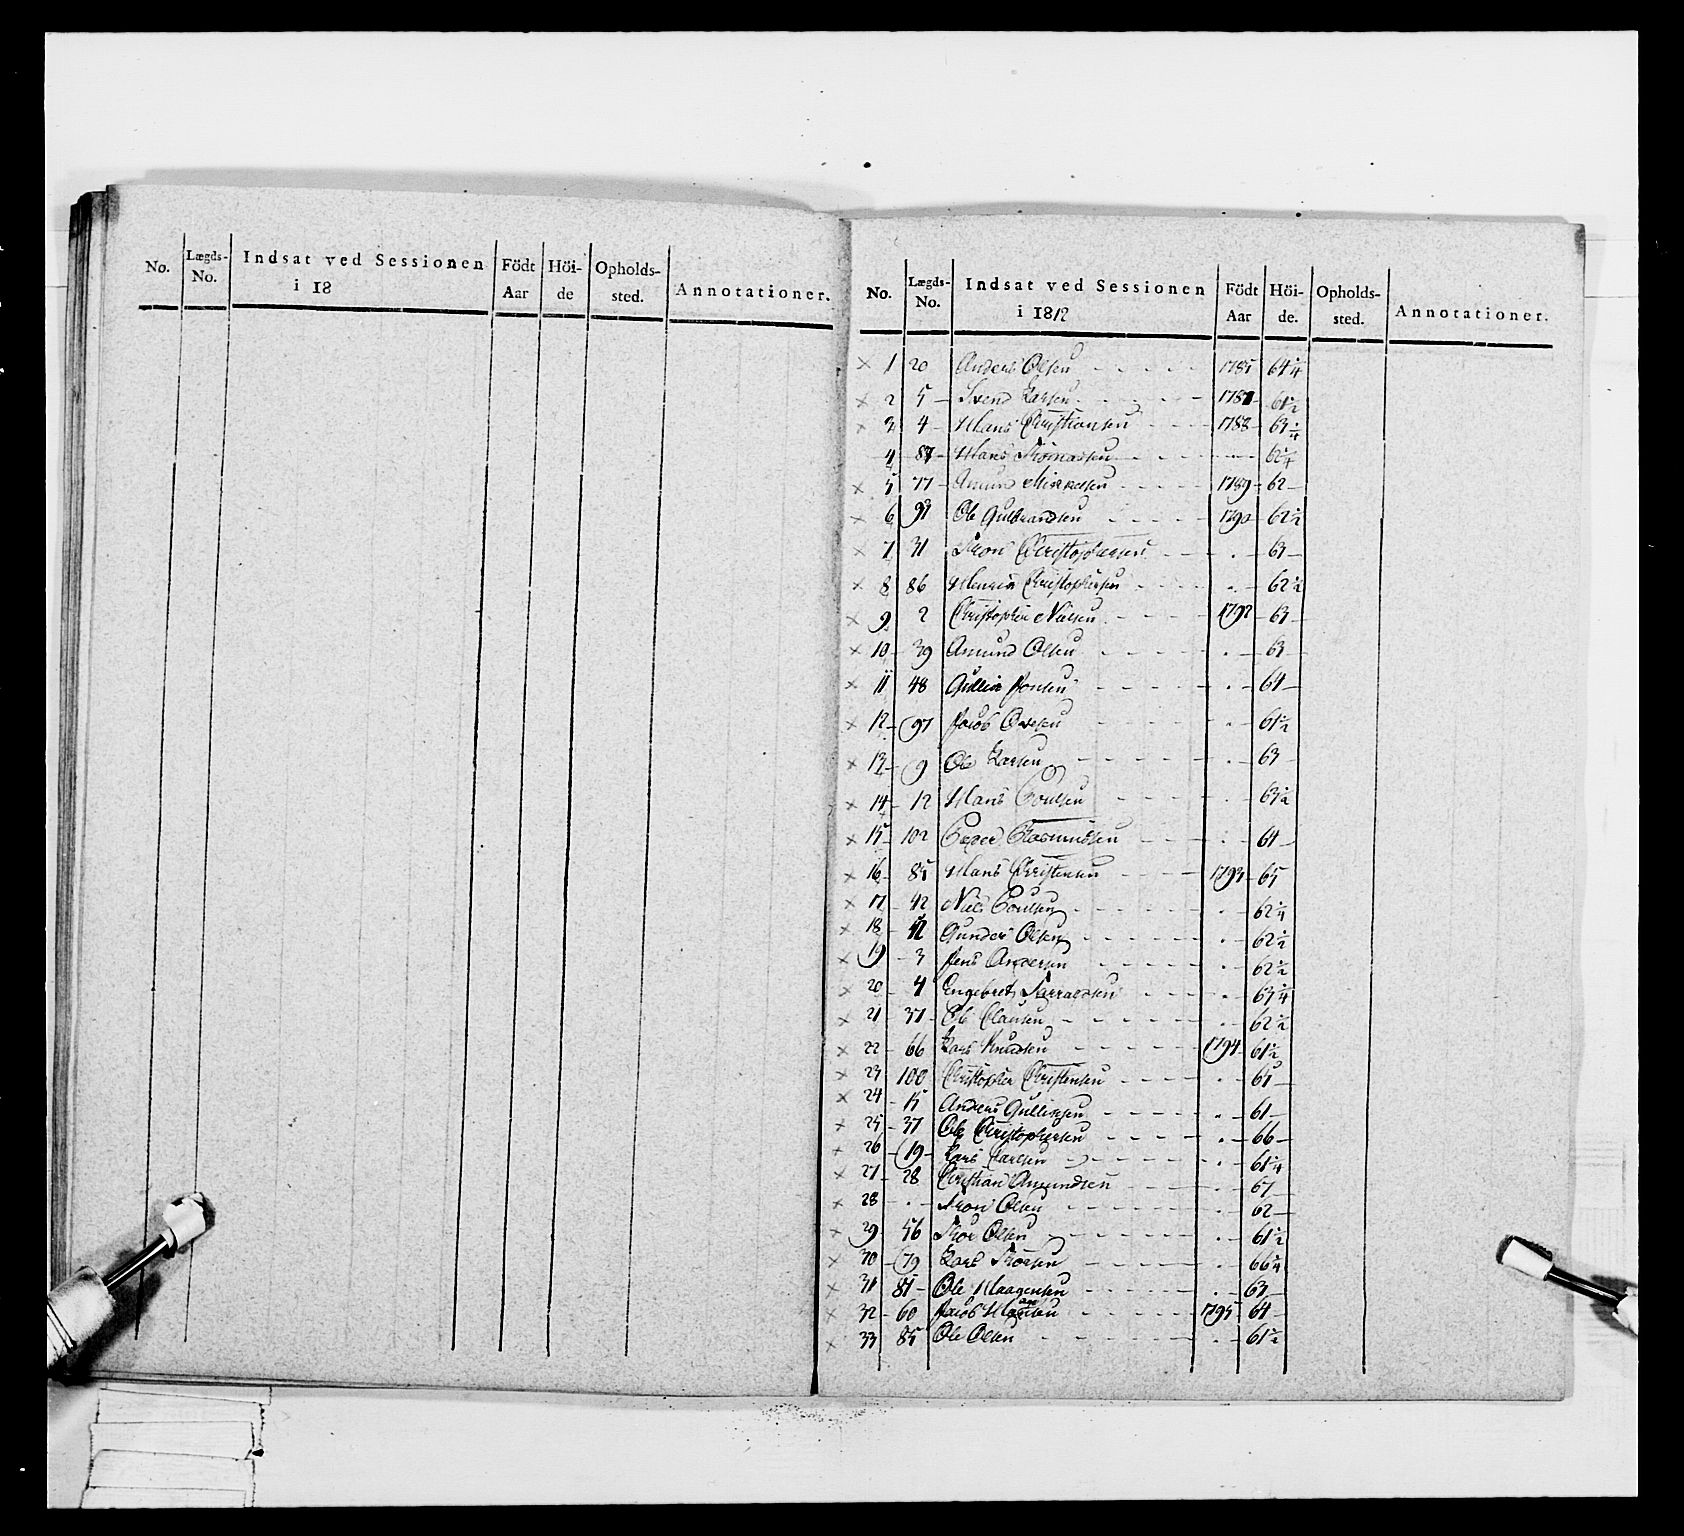 No. Lægds-No. Indsat ved Sessionen i 18 Födt Aar Höi-de Opholds-sted. Annotationer.
No. Lægds-No. Indsat ved Sessionen i 1812 Födt Aar Höi-de. Opholds-sted. Annotationer.
× 1 20 Anders Olsen - - - - 1785 64 1/4
× 2 5 - Svend Larsen - - - - 1787 - 61 1/2
× 3 4 - Hans Christiansen - - - 1788 - 63 1/4
4 87 - Hans Thomassen - - - - 62 1/4
× 5 77 - Amund Mikkelsen - - - - 1789 - 62 -
× 6 97 Ole Gulbrandsen - - - - 1790 - 62 1/2
× 7 31 Tron Christophersen - - . - 63 -
× 8 86 Henrik Christophersen - - - . - 62 1/2
× 9 2 Christopher Nielsen - - - - 1792 - 63 -
× 10 - 39 Amund Olsen - - - - . - 63 -
× 11 48 Gullik Jonsen - - - - . - 64 -
× 12 - 97 Jacob Olsen - - - - . - 61 1/2
× 13 - 9 Ole Larsen - - - - . - 63 -
× 14 - 12 Hans Poulsen - - - - . - 63 1/2
× 15 - 102 Peder Rasmussen - - - . - 64 -
× 16 - 85 Hans Christensen - - - 1793 - 65
× 17 - 42 Niels Poulsen - - - - . - 62 1/4
× 18 - 12 Gunder Olsen - - - - . - 62 1/2
× 19 - 3 Jens Andersen - - - - . - 62 1/2
× 20 - 4 Engebret - - - . - 63 1/4
× 21 - 37 - Ole Clausen - - - - . - 62 1/2
× 22 - 66 Lars Knudsen - - - - 1794 - 61 1/2
× 23 - 100 Christopher Christensen - - - . - 65 -
× 24 - 15 Anders Gulliksen - - - - . - 61 -
× 25 - 37 Ole Christophersen - - - - . - 66 -
× 26 - 19 - Lars Larsen - - - - . - 61 1/4
× 27 - 28 Christian Amundsen - - - . - 67 -
× 28 - . - Tron Olsen - - - - . - 62 -
× 29 - 56 Thor Olsen - - - - . - 61 1/2
× 30 - 79 Lars Thorsen - - - - . - 66 1/4
× 31 - 81 - Ole Haagensen - - - - . - 63 -
× 32 - 60 Jacob Hansen - - - - 1795 - 64 -
× 33 85 Ole Olsen - - - - . - 61 1/2